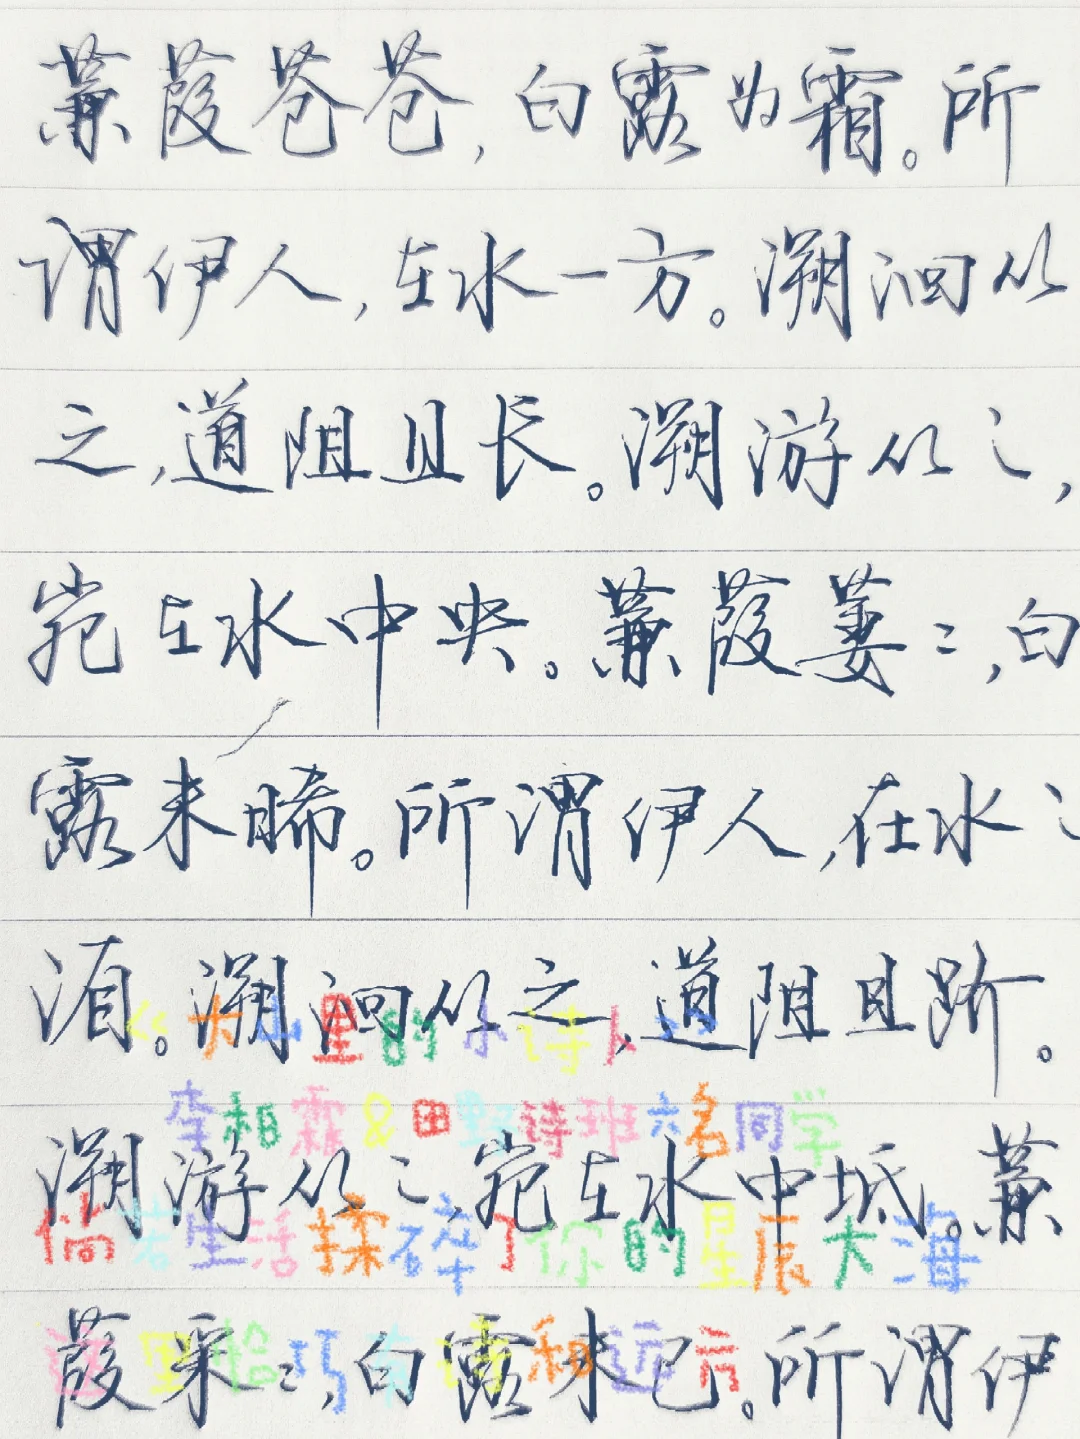 蒹葭苍苍，白露为霜。所
谓伊人，在水一方。溯洄从
之，道阻且长。溯游从之，
宛在水中央。蒹葭萋〻，白
露未晞。所谓伊人，在水之
湄。溯洄从之，道阻且跻。
《大山里的小诗人》
李柏霖&田野诗班六名同学
溯游从之，宛在水中坻。蒹
倘若生活揉碎了你的星辰大海
葭采〻，白露未已。所谓伊
这里恰巧有诗和远方